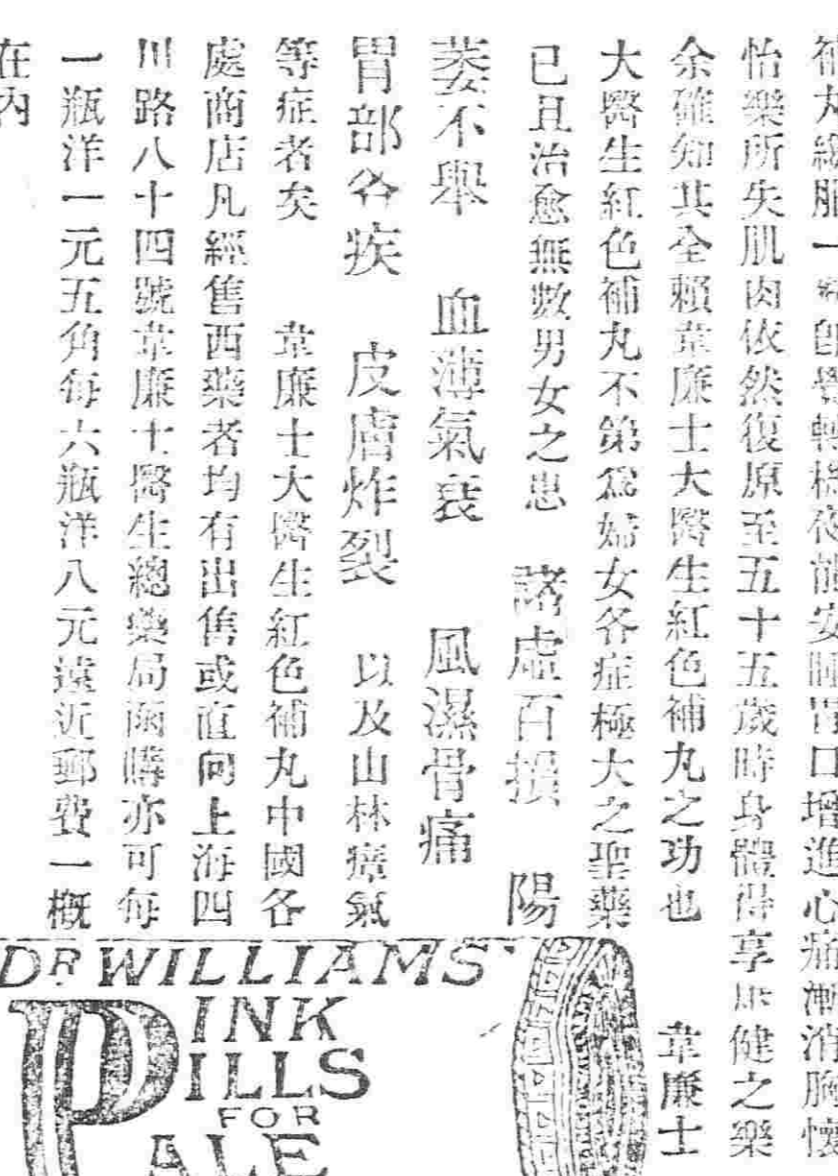 補丸繼服一瓶即覺輕機後前安眠胃口增進心痛漸消胸懷
怡樂所失肌肉依然復原至五十五歲時身體得享康健之樂
余確知其全賴韋廉士大醫生紅色補丸之功也 韋廉士
大醫生紅色補丸不第爲婦女各症極大之聖藥
已且治愈無數男女之患 諸虛百損 陽
萎不舉 血薄氣衰 風濕骨痛
胃部各疾 皮膚炸裂 以及山林瘴氣
等症者矣 韋廉士大醫生紅色補丸中國各
處商店凡經售西藥者均有出售或直向上海四
川路八十四號韋廉士醫生總藥局函購亦可每
一瓶洋一元五角每六瓶洋八元遠近郵費一概
在內
DR WILLIAMS'
PINK
PILLS
FOR
PALE